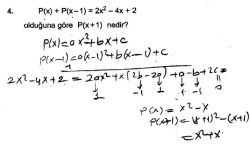 4. P(x) + P(x−1) = 2x² − 4x + 2
olduğuna göre P(x+1) nedir?
P(x) = ax² + bx + c
P(x−1) = a(x−1)² + b(x−1) + c
+
2x² − 4x + 2 = 2ax² + x(2b − 2a) + a − b + 2c =
1 -1 1 -1 0
P(x) = x² − x
P(x+1) = (x+1)² − (x+1)
= x² + x